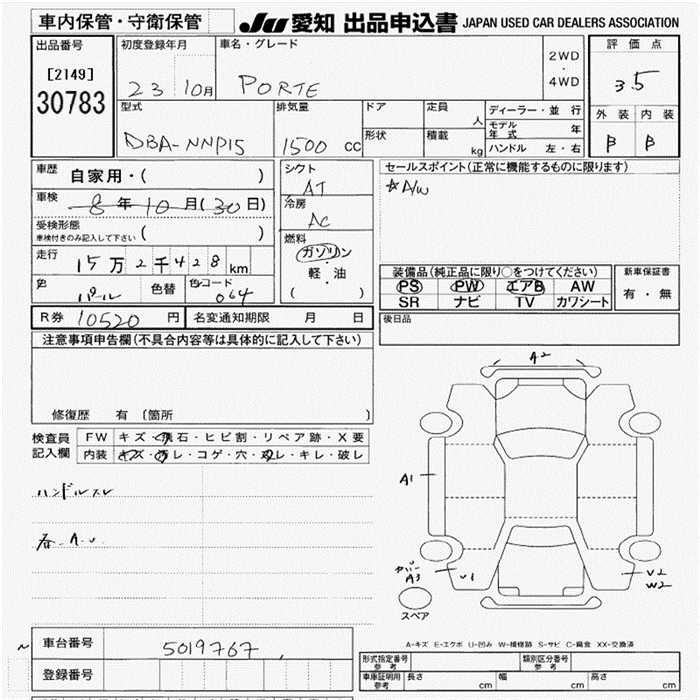 車内保管・守衛保管 JU 愛知 出品申込書 JAPAN USED CAR DEALERS ASSOCIATION
出品番号 初度登録年月 車名・グレード 2WD ・ 4WD 評価点
[2149] 23 10月 PORTE 3.5
30783 型式 排気量 ドア 定員 人 ディーラー・並行 外装 内装
DBA-NNP15 1500 cc 形状 積載 kg モデル年式 年 B B
ハンドル 左・右
車歴 自家用・( ) シフト AT セールスポイント(正常に機能するものに限ります)
車検 8年10月(30日) 冷房 AC ☆A/W
受検形態 ( )
車検付きのみ記入して下さい
燃料 ガソリン
走行 15万2千428km 軽・油 装備品(純正品に限り○をつけてください) 新車保証書
色 パール 色替 色コード 064 ( ) PS PW エアB AW 有・無
SR ナビ TV カワシート
R券 10520円 名変通知期限 月 日 後日品
注意事項申告欄(不具合内容等は具体的に記入して下さい)
修復歴 有 〔箇所 〕
検査員 FW キズ・飛石・ヒビ割・リペア跡・X要
記入欄 内装 キズ・汚レ・コゲ・穴・スレ・キレ・破レ
ハンドルスレ
A2
A1
A3
V1
V2
W2
スペア
A-キズ E-エクボ U-凹み W-補修跡 S-サビ C-腐食 XX-交換済
車台番号 5019767
登録番号
形式指定番号 参考 類別区分番号 参考
車庫証明用 参考 長さ cm 幅 cm 高さ cm